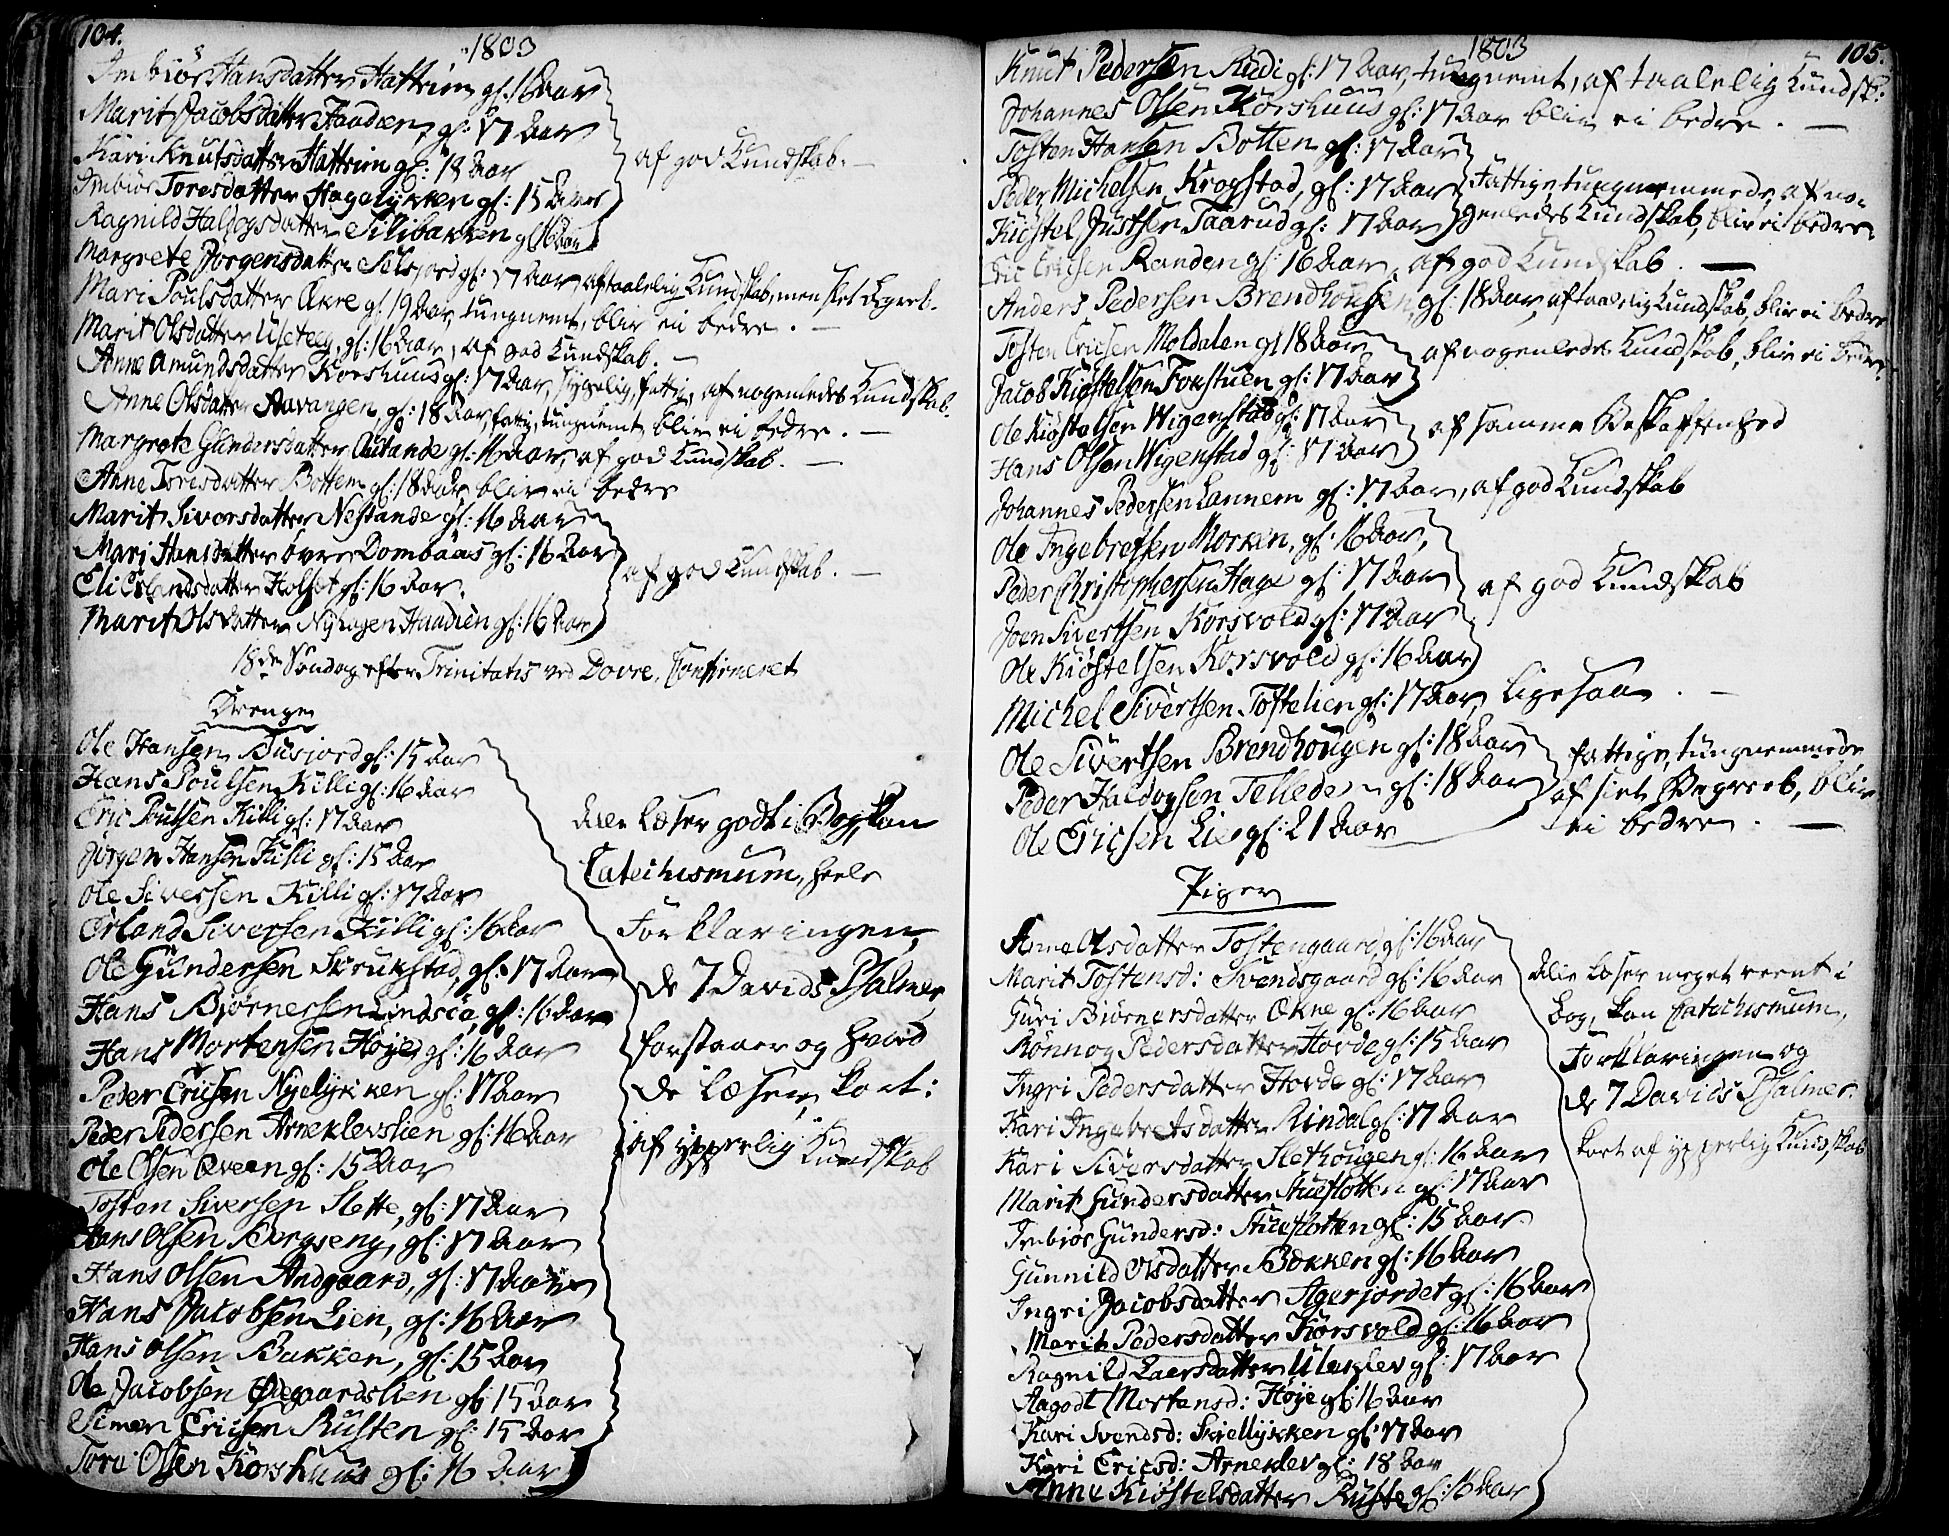 104.
1803
Imbiör Hansdatter Hattrim gl: 16 Aar
Marit Jacobsdatter Haadien, gl: 17 Aar
Kari Knutsdatter Hattrim gl: 18 Aar
Imbiör Toresdatter Hagelykken gl: 15 Aar
Ragnild Haldogsdatter Silibakken gl: 16 Aar
af god Kundskab. —
Margrete Jörgensdatter Selsjord gl: 17 Aar, af taalelig Kundskab, men slet Begreb.
Mari Poulsdatter Økre gl: 19 Aar, tungnemt, blir ei bedre. —
Marit Olsdatter, gl: 16 Aar, af god Kundskab. —
Anne Amundsdatter Korshuus gl: 17 Aar, sygelig, fattig, af nogenledes Kundskab.
Anne Olsdatter Aavangen, gl: 18 Aar, fattig, tungnemt blir ei bedre. —
Margrete Gundersdatter gl: 16 Aar, af god Kundskab. —
Anne Toresdatter Botten gl: 18 Aar blir ei bedre
Marit Siversdatter Nestande gl: 16 Aar
Mari Hansdatter övre Dombaas gl: 16 Aar
Eli Erlandsdatter Holset gl: 16 Aar.
Marit Olsdatter Haadien gl: 16 Aar
af god Kundskab. —
18de Söndag efter Trinitatis ved Dovre, Confirmeret
Drenge
Ole Hansen Busjord gl: 15 Aar
Hans Poulsen Killi gl: 16 Aar
Eric Poulsen Killi gl: 17 Aar
Jörgen Hansen Killi gl: 15 Aar
Ole Siversen Killi gl: 17 Aar
Erland Siversen Killi gl: 16 Aar
Ole Gundersen Skrukstad, gl: 17 Aar
Hans Björnersen Lindsöe, gl: 16 Aar
Hans Mortensen Höye, gl: 16 Aar
Peder Ericsen Nyelykken gl: 17 Aar
Peder Pedersen Arneklevslien gl: 16 Aar
Ole Olsen Qveen gl: 15 Aar
Tosten Siversen Slette, gl: 17 Aar
Hans Olsen Bergseng, gl: 17 Aar
Hans Olsen Andgaard, gl: 17 Aar
Hans Jacobsen Lien, gl: 16 Aar
Hans Olsen Bakken, gl: 15 Aar
Ole Jacobsen Ödegaardslien gl: 15 Aar
Simen Ericsen Rusten gl: 15 Aar
Tore Olsen Korshuus gl: 16 Aar
Alle læser godt i Bog, kan
Catechismum, heele
Forklaringen,
de 7 Davids Psalmer,
forstaaer og hvad
de læser, kort:
af ypperlig Kundskab
1803
105.
Knut Pedersen Rudi gl: 17 Aar, tungnemt, af taalelig Kundsk:
Johannes Olsen Korshuus gl: 17 Aar blir ei bedre. —
Tosten Hansen Botten gl: 17 Aar
Peder Michelsen Krogstad, gl: 17 Aar
Kiöstel Justsen Taarud gl: 17 Aar
Fattige, tungnemmede, af no-
genledes Kundskab, blir ei bedre
Eric Ericsen Randen gl: 16 Aar, af god Kundskab. —
Anders Pedersen Brendhougen, gl: 18 Aar, af taalelig Kundskab, blir ei bedre
Tosten Ericsen Moldalen gl 18 Aar
Jacob Kiöstelsen Fokstuen gl: 17 Aar
af nogenledes Kundskab, blir ei bedre.
Ole Kiöstelsen Wigenstad gl: 17 Aar
Hans Olsen Wigenstad gl: 17 Aar
af samme Beskaffenhed
Johannes Pedersen Lannem gl: 17 Aar, af god Kundskab
Ole Ingebretsen Morken, gl: 16 Aar,
Peder Christophersen Hage gl: 17 Aar
Joen Sivertsen Korsvold gl: 17 Aar
Ole Kiöstelsen Korsvold gl: 16 Aar
af god Kundskab
Michel Sivertsen Toftelien gl: 17 Aar, ligesaa. —
Ole Sivertsen Brendhougen gl: 18 Aar
Peder Haldogsen gl: 18 Aar
Ole Ericsen Lie gl: 21 Aar
fattige, tungnemmede
af slet Begreeb, blir
ei bedre. —
Piger
Anne Olsdatter Tostengaard, gl: 16 Aar
Marit Tostensd: Svendsgaard gl: 16 Aar
Guri Biörnersdatter Økne gl: 16 Aar
Rönnog Pedersdatter Horde gl: 15 Aar
Ingri Pedersdatter Horde gl: 17 Aar
Kari Ingebretsdatter Rindal gl: 17 Aar
Kari Siversdatter Slethougen gl: 16 Aar
Marit Gundersdatter Stueflotten gl: 17 Aar
Imbiör Gundersd: Stueflotten gl: 15 Aar.
Gunnild Olsdatter Bakken gl: 16 Aar
Ingri Jacobsdatter Agerjordet gl: 16 Aar
Marit Pedersdatter Korsvold gl: 16 Aar
Ragnild Laersdatter Uleklev gl: 17 Aar
Aagodt Mortensd: Höye gl: 16 Aar
Kari Svendsd: Skiellykken gl: 17 Aar
Kari Ericsd: Arneklev gl: 18 Aar
Anne Kiöstelsdatter Ruste gl: 16 Aar
Alle læser meget reent i
bog, kan Catechismum,
Forklaringen og
de 7 Davids Psalmer.
kort af ypperlig Kundskab